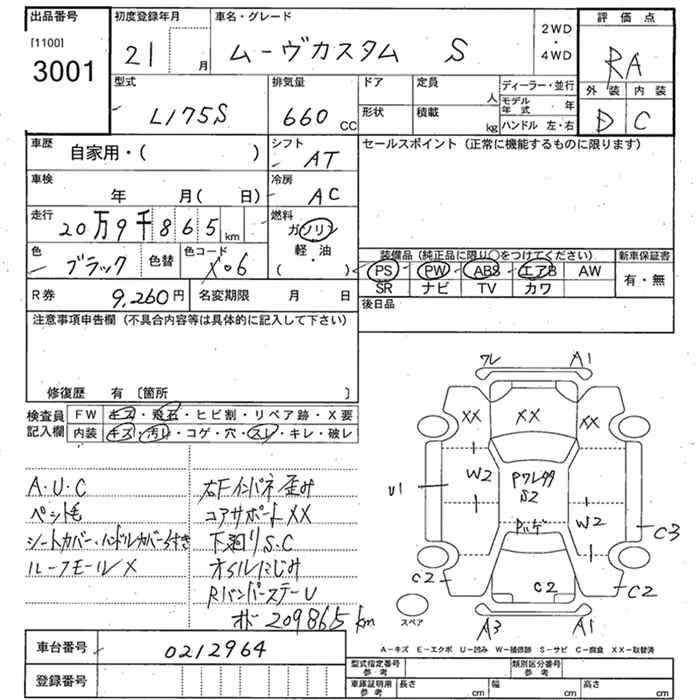 出品番号 [1100] 3001
初度登録年月 21 月
車名・グレード ムーヴカスタム S
2WD・4WD
評価点 RA
外装 D 内装 C
型式 L175S
排気量 660 CC
ドア 形状
定員 人
積載 kg
ディーラー・並行
モデル年式 年
ハンドル 左・右
車歴 自家用・( )
シフト AT
セールスポイント(正常に機能するものに限ります)
車検 年 月(日)
冷房 AC
走行 20万9千865 km
燃料 ガソリン 軽・油 ( )
色 ブラック 色替
色コード X06
装備品(純正品に限り○をつけてください)
PS PW ABS エアB AW
SR ナビ TV カワ
新車保証書 有・無
R券 9,260円
名変期限 月 日
後日品
注意事項申告欄(不具合内容等は具体的に記入して下さい)
修復歴 有〔箇所 〕
検査員記入欄
FW キズ・飛石・ヒビ割・リペア跡・X要
内装 キズ・汚れ・コゲ・穴・スレ・キレ・破レ
A・U・C
ペット毛
シートカバー・ハンドルカバー付き
ルーフモールX
右Fインパネ歪み
コアサポートXX
下廻りS.C
オイルにじみ
RバンパーステーU
オド 209865km
ワレ A1
XX XX XX
W2 PワレU W2
S2
U1 Pハゲ C3
C2 C2 C2
A3 A1
スペア
A-キズ E-エクボ U-凹み W-補修跡 S-サビ C-腐食 XX-取替済
車台番号 0212964
登録番号
型式指定番号 参考
類別区分番号 参考
車庫証明用 参考 長さ cm 幅 cm 高さ cm